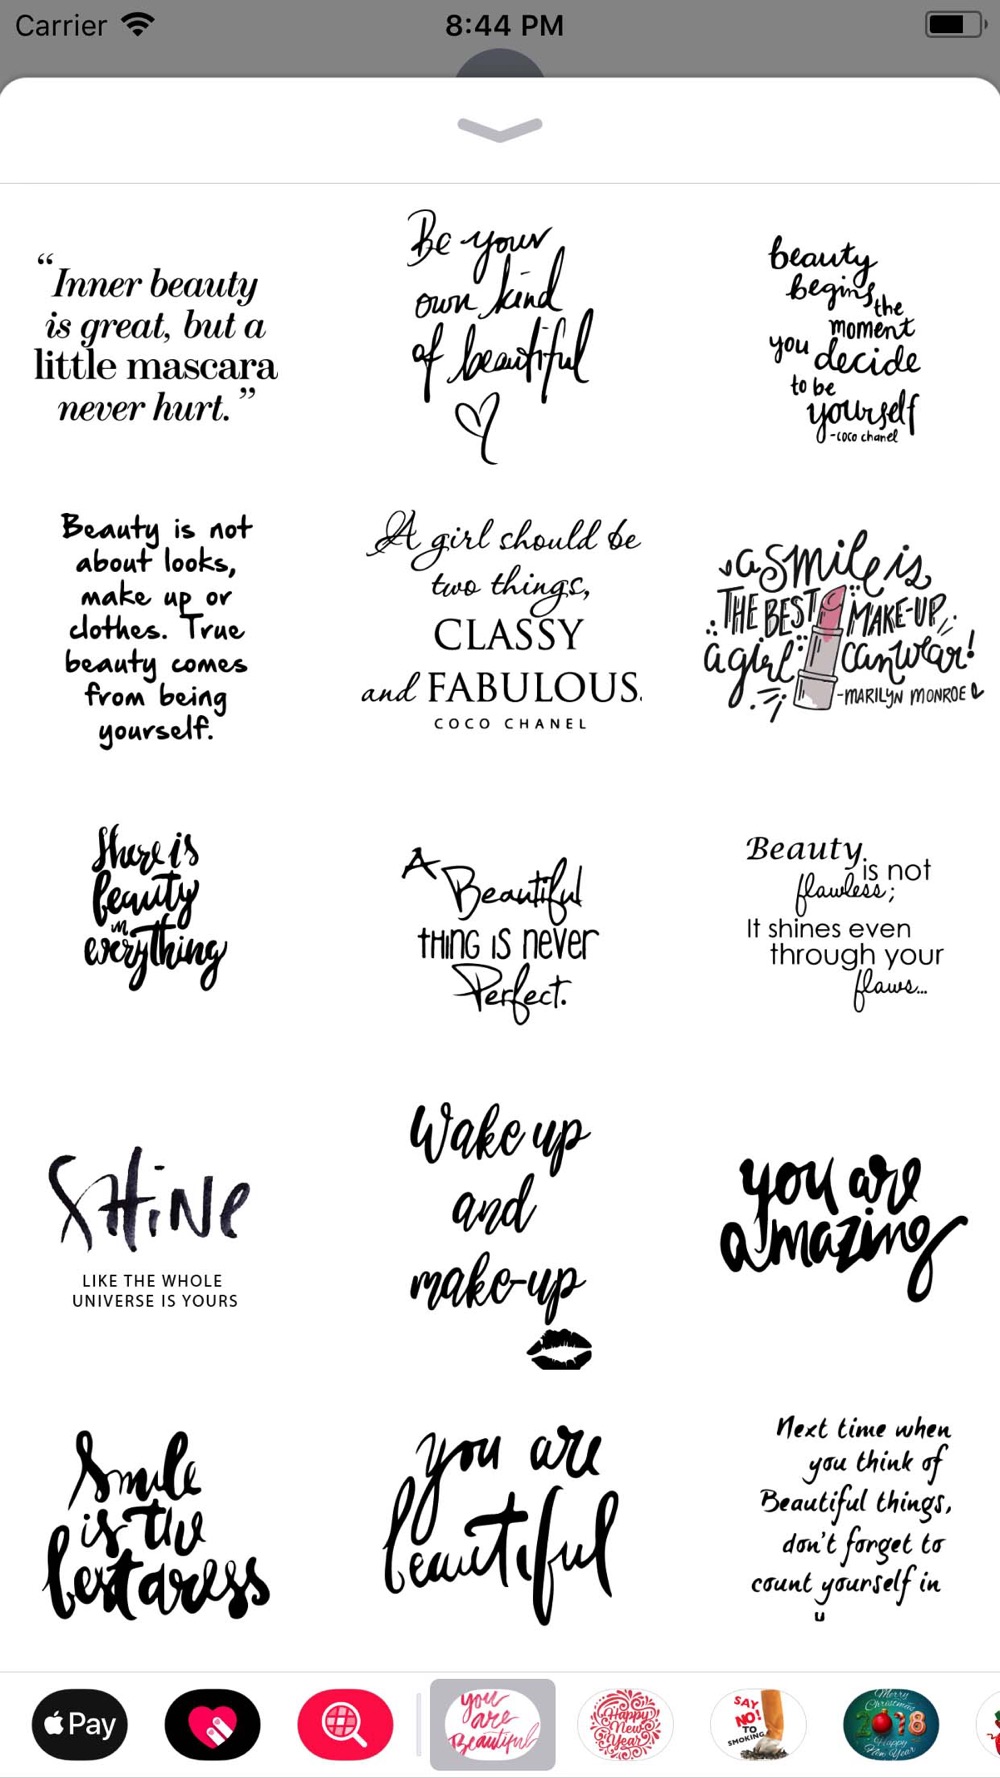 Carrier 8:44 PM
“Inner beauty
is great, but a
little mascara
never hurt.”
Be your
own kind
of beautiful
beauty
begins the
moment
you decide
to be
yourself
-coco chanel
Beauty is not
about looks,
make up or
clothes. True
beauty comes
from being
yourself.
A girl should be
two things,
CLASSY
and FABULOUS.
COCO CHANEL
a smile is
THE BEST MAKE-UP
a girl can wear!
-MARILYN MONROE
there is
beauty
in
everything
A
Beautiful
THING IS never
Perfect.
Beauty
is not
flawless;
It shines even
through your
flaws...
SHiNe
LIKE THE WHOLE
UNIVERSE IS YOURS
Wake up
and
make-up
you are
amazing
Smile
is the
best dress
you are
beautiful
Next time when
you think of
Beautiful things,
don't forget to
count yourself in
Pay
you
are
Beautiful
Happy
New
Year
SAY
NO!
TO
SMOKING
Merry
Christmas
2018
Happy
New Year